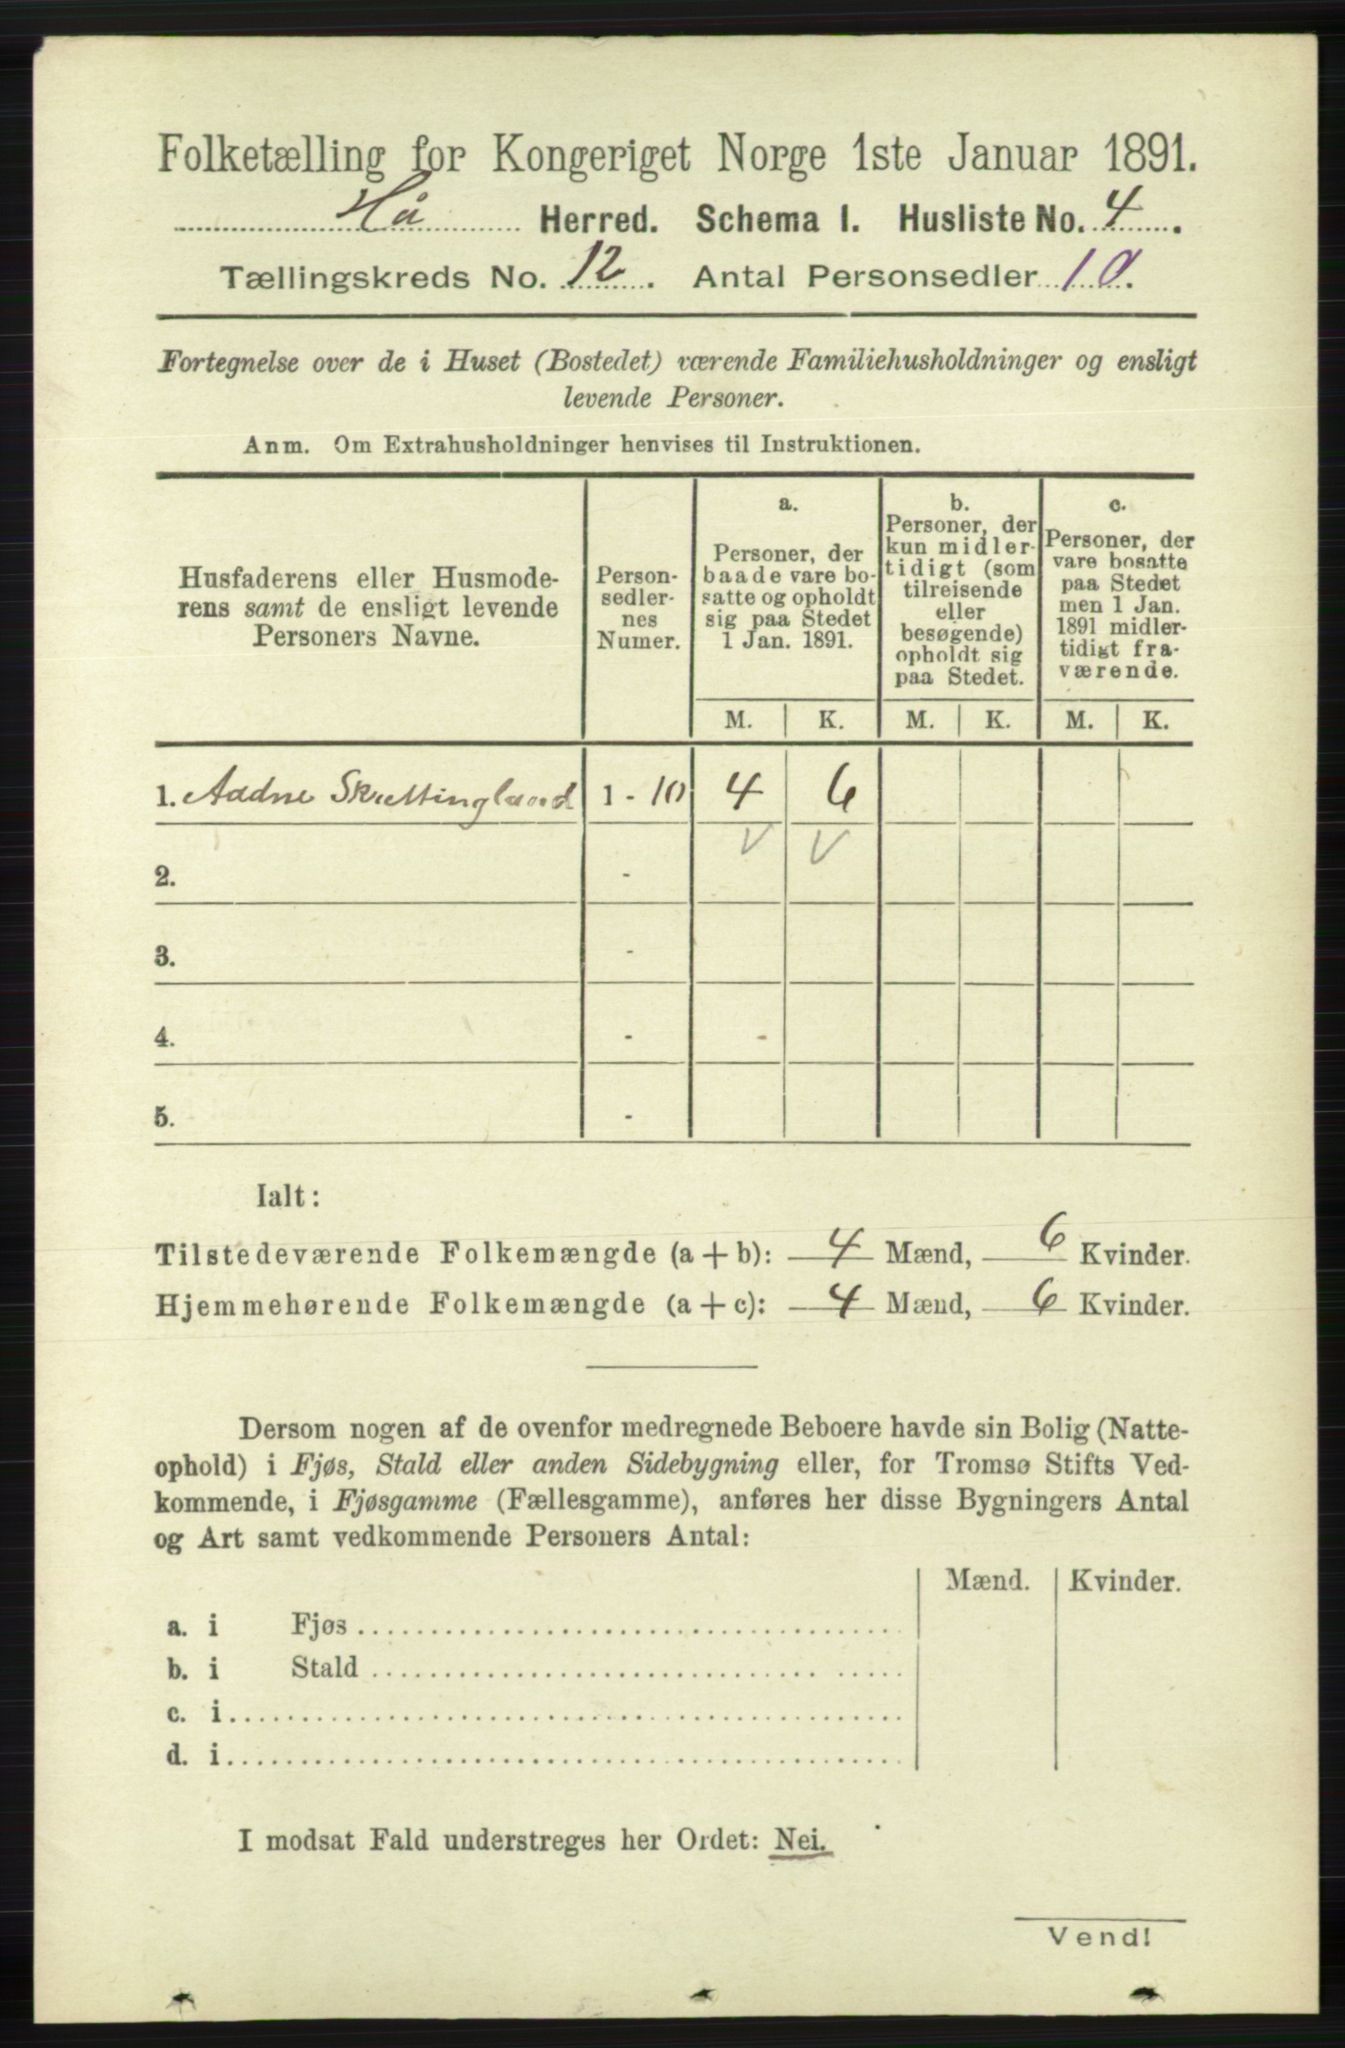 Folketælling for Kongeriget Norge 1ste Januar 1891.
Hå Herred. Schema I. Husliste No. 4.
Tællingskreds No. 12. Antal Personsedler 10.
Fortegnelse over de i Huset (Bostedet) værende Familiehusholdninger og ensligt
levende Personer.
Anm. Om Extrahusholdninger henvises til Instruktionen.
Husfaderens eller Husmode-
rens samt de ensligt levende
Personers Navne.
Person-
sedler-
nes
Numer.
a.
Personer, der
baade vare bo-
satte og opholdt
sig paa Stedet
1 Jan. 1891.
b.
Personer, der
kun midler-
tidigt (som
tilreisende
eller
besøgende)
opholdt sig
paa Stedet.
c.
Personer, der
vare bosatte
paa Stedet
men 1 Jan.
1891 midler-
tidigt fra-
værende.
M. K. M. K. M. K.
1. Aadne Skrettingland 1 - 10 4 6
V V
2. -
3. -
4. -
5. -
Ialt:
Tilstedeværende Folkemængde (a + b): 4 Mænd, 6 Kvinder.
Hjemmehørende Folkemængde (a + c): 4 Mænd, 6 Kvinder.
Dersom nogen af de ovenfor medregnede Beboere havde sin Bolig (Natte-
ophold) i Fjøs, Stald eller anden Sidebygning eller, for Tromsø Stifts Ved-
kommende, i Fjøsgamme (Fællesgamme), anføres her disse Bygningers Antal
og Art samt vedkommende Personers Antal:
Mænd. Kvinder.
a. i Fjøs
b. i Stald
c. i
d. i
I modsat Fald understreges her Ordet: Nei.
Vend!